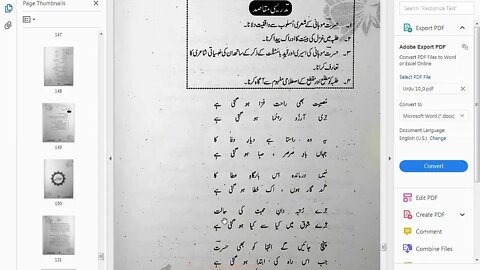 Page Thumbnails
147
148
149
150
151
تدریسی مقاصد
۱۔ حسرت موہانی کے شعری اسلوب سے واقفیت دلانا۔
۲۔ طلبہ میں غزل کی ہیئت کا ادراک پیدا کرنا۔
۳۔ حسرت موہانی کی اسیری اور قید با مشقت کے ذکر کے ساتھ ان کی حبسیاتی شاعری کا
تعارف کرانا۔
۴۔ طلبہ کو مطلع اور مقطع کے اصطلاحی مفہوم سے آگاہ کرنا۔
مصیبت بھی راحت فزا ہو گئی ہے
تری آرزو رہنما ہو گئی ہے
یہ وہ راستا ہے دیارِ وفا کا
جہاں بادِ صرصر ، صبا ہو گئی ہے
میں درماندہ اس بارگاہِ عطا کا
گنہ گار ہوں، اک خطا ہو گئی ہے
ترے رتبہ دانِ محبت کی حالت
ترے شوق میں کیا سے کیا ہو گئی ہے
پہنچ جائیں گے انتہا کو بھی حسرتؔ
جب اس راہ کی ابتدا ہو گئی ہے
Search 'Recognize Text'
Export PDF
Adobe Export PDF
Convert PDF Files to Word
or Excel Online
Select PDF File
Urdu 10_9.pdf
Convert to
Microsoft Word (*.docx)
Document Language:
English (U.S.) Change
Convert
Edit PDF
Create PDF
Comment
Combine Files